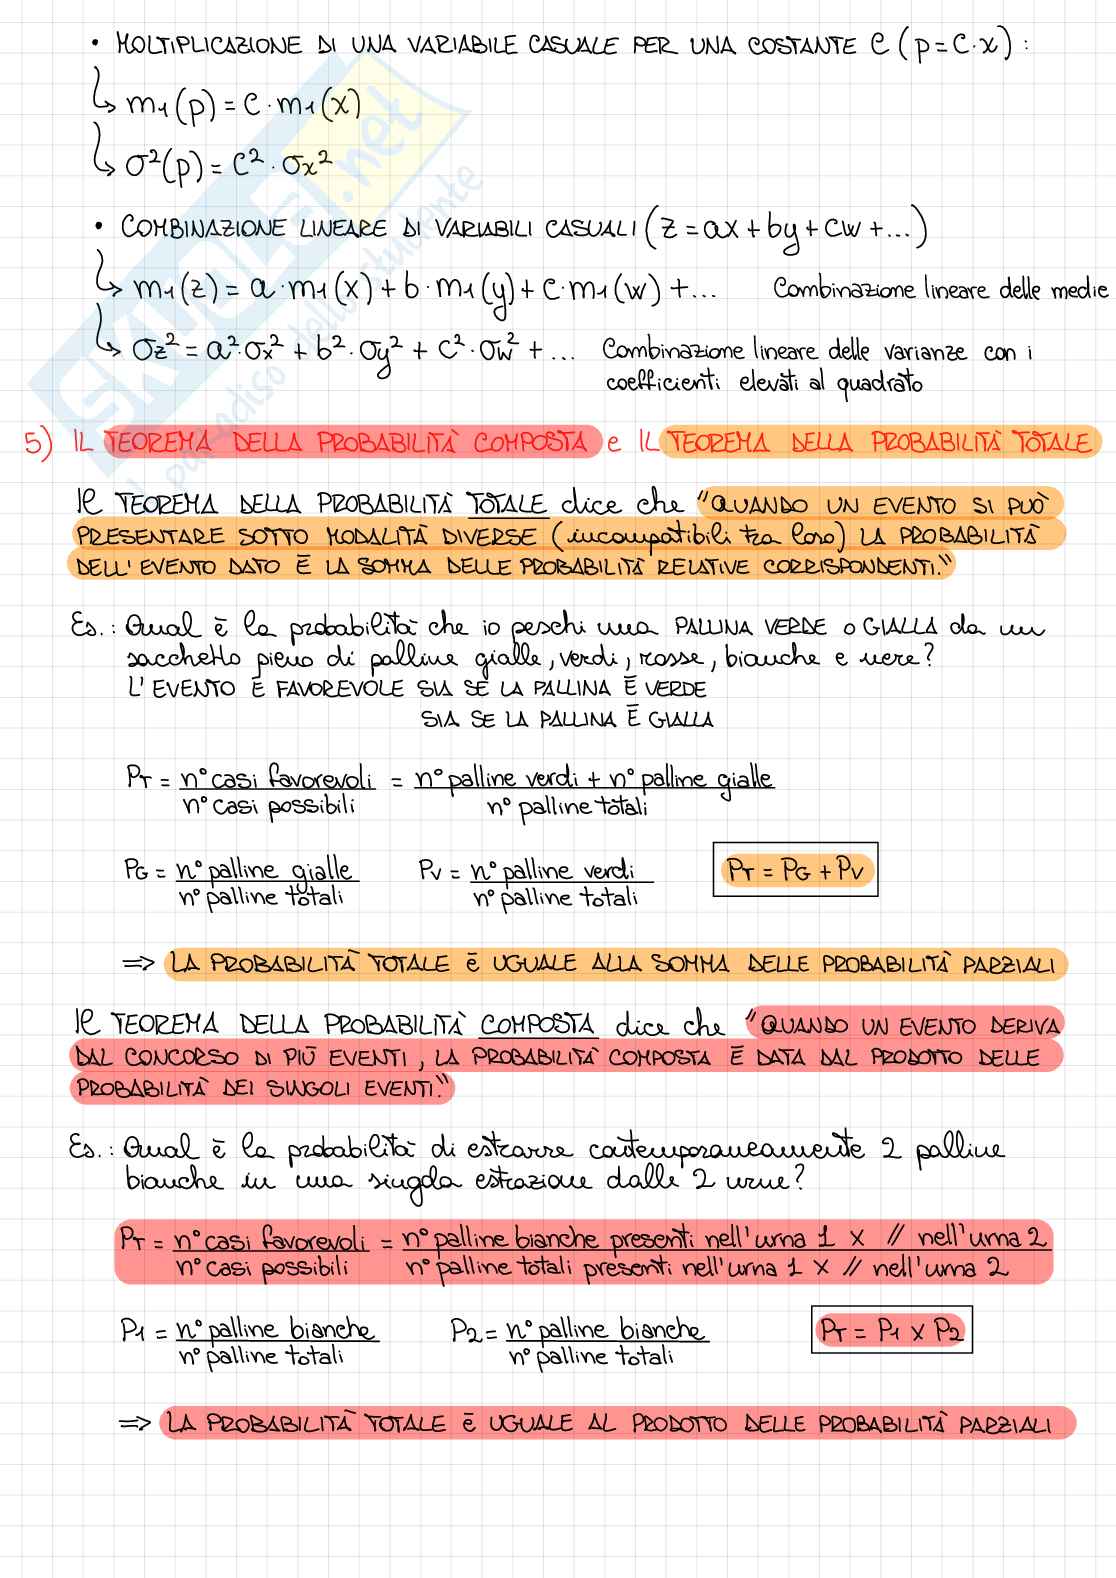 • MOLTIPLICAZIONE DI UNA VARIABILE CASUALE PER UNA COSTANTE C (p=C·x):
↳ m₁(p) = C·m₁(x)
↳ σ²(p) = C²·σx²
• COMBINAZIONE LINEARE DI VARIABILI CASUALI (z = ax + by + cw + ...)
↳ m₁(z) = a·m₁(x) + b·m₁(y) + c·m₁(w) + ... Combinazione lineare delle medie
↳ σz² = a²·σx² + b²·σy² + c²·σw² + ... Combinazione lineare delle varianze con i
coefficienti elevati al quadrato
5) IL TEOREMA DELLA PROBABILITÀ COMPOSTA e IL TEOREMA DELLA PROBABILITÀ TOTALE
Il TEOREMA DELLA PROBABILITÀ TOTALE dice che "QUANDO UN EVENTO SI PUÒ
PRESENTARE SOTTO MODALITÀ DIVERSE (incompatibili tra loro) LA PROBABILITÀ
DELL'EVENTO DATO È LA SOMMA DELLE PROBABILITÀ RELATIVE CORRISPONDENTI."
Es.: Qual è la probabilità che io peschi una PALLINA VERDE o GIALLA da un
sacchetto pieno di palline gialle, verdi, rosse, bianche e nere?
L'EVENTO È FAVOREVOLE SIA SE LA PALLINA È VERDE
SIA SE LA PALLINA È GIALLA
PT = n° casi favorevoli / n° casi possibili = n° palline verdi + n° palline gialle / n° palline totali
PG = n° palline gialle / n° palline totali PV = n° palline verdi / n° palline totali PT = PG + PV
⇒ LA PROBABILITÀ TOTALE è UGUALE ALLA SOMMA DELLE PROBABILITÀ PARZIALI
Il TEOREMA DELLA PROBABILITÀ COMPOSTA dice che "QUANDO UN EVENTO DERIVA
DAL CONCORSO DI PIÙ EVENTI, LA PROBABILITÀ COMPOSTA È DATA DAL PRODOTTO DELLE
PROBABILITÀ DEI SINGOLI EVENTI."
Es.: Qual è la probabilità di estrarre contemporaneamente 2 palline
bianche in una singola estrazione dalle 2 urne?
PT = n° casi favorevoli / n° casi possibili = n° palline bianche presenti nell'urna 1 x // nell'urna 2 / n° palline totali presenti nell'urna 1 x // nell'urna 2
P1 = n° palline bianche / n° palline totali P2 = n° palline bianche / n° palline totali PT = P1 x P2
⇒ LA PROBABILITÀ TOTALE è UGUALE AL PRODOTTO DELLE PROBABILITÀ PARZIALI
SKUOLA.net
il paradiso dello studente